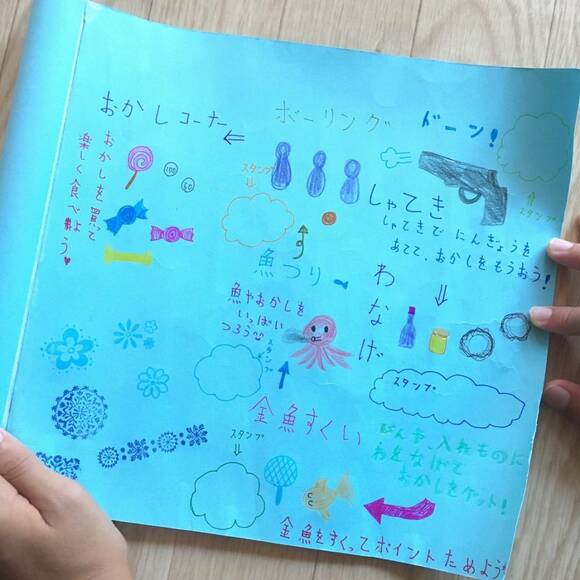 おかしコーナー
おかしを買って
楽しく食べよう♥
100
50
ボーリング
スタンプ
ドーン!
スタンプ
しゃてき
しゃてきでにんぎょうを
あてて、おかしをもうおう!
魚つり
魚やおかしを
いっぱい
つろう
スタンプ
わなげ
スタンプ
びんや、入れものに
わをなげて
おかしをゲット!
金魚すくい
スタンプ
金魚をすくってポイントためよう